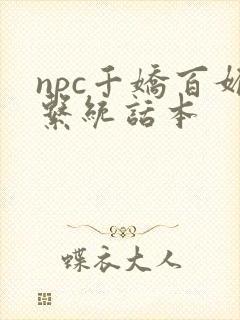 npc千嬌百
繫統話本
蝶衣大人